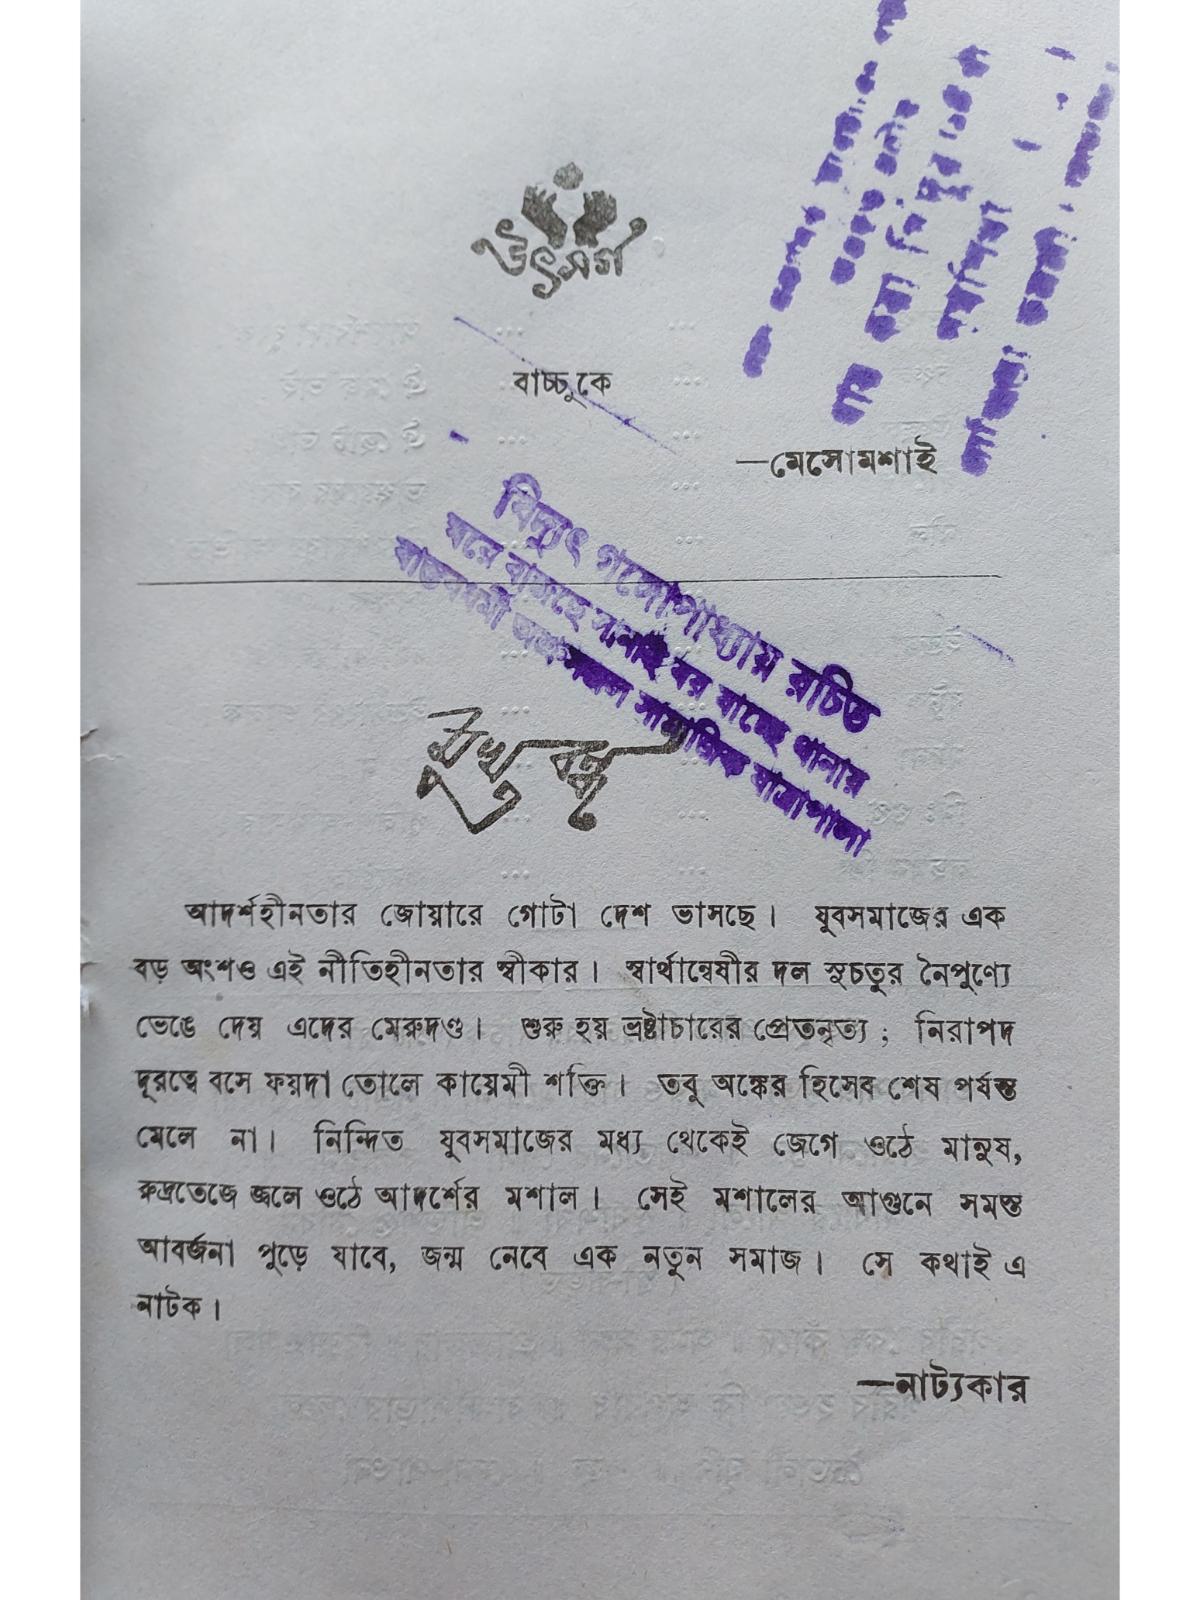 উৎসর্গ
বাচ্চুকে
—মেসোমশাই
বিদ্যুৎ গঙ্গোপাধ্যায় রচিত
ঘরে বাজছে সানাই বর যাচ্ছে থানায়
বাস্তবধর্মী অশ্রুসজল সামাজিক যাত্রাপালা
মুখবন্ধ
আদর্শহীনতার জোয়ারে গোটা দেশ ভাসছে। যুবসমাজের এক
বড় অংশও এই নীতিহীনতার স্বীকার। স্বার্থান্বেষীর দল সুচতুর নৈপুণ্যে
ভেঙে দেয় এদের মেরুদণ্ড। শুরু হয় ভ্রষ্টাচারের প্রেতনৃত্য; নিরাপদ
দূরত্বে বসে ফয়দা তোলে কায়েমী শক্তি। তবু অঙ্কের হিসেব শেষ পর্যন্ত
মেলে না। নিন্দিত যুবসমাজের মধ্য থেকেই জেগে ওঠে মানুষ,
রুদ্রতেজে জ্বলে ওঠে আদর্শের মশাল। সেই মশালের আগুনে সমস্ত
আবর্জনা পুড়ে যাবে, জন্ম নেবে এক নতুন সমাজ। সে কথাই এ
নাটক।
—নাট্যকার